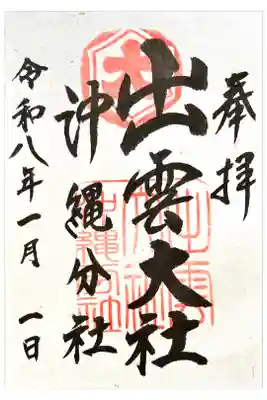 奉拝
出雲大社
沖縄分社
令和八年一月一日